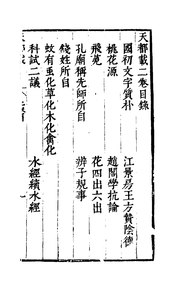 天都載二卷目錄
國初文字質朴 江景易王方贄陰德
桃花源 趙閱學抗論
飛菟 花四出六出
孔廟稱先師所自 辨子規事
姓所自
蚊有虫化草化木化禽化
科試二議 水經續水經